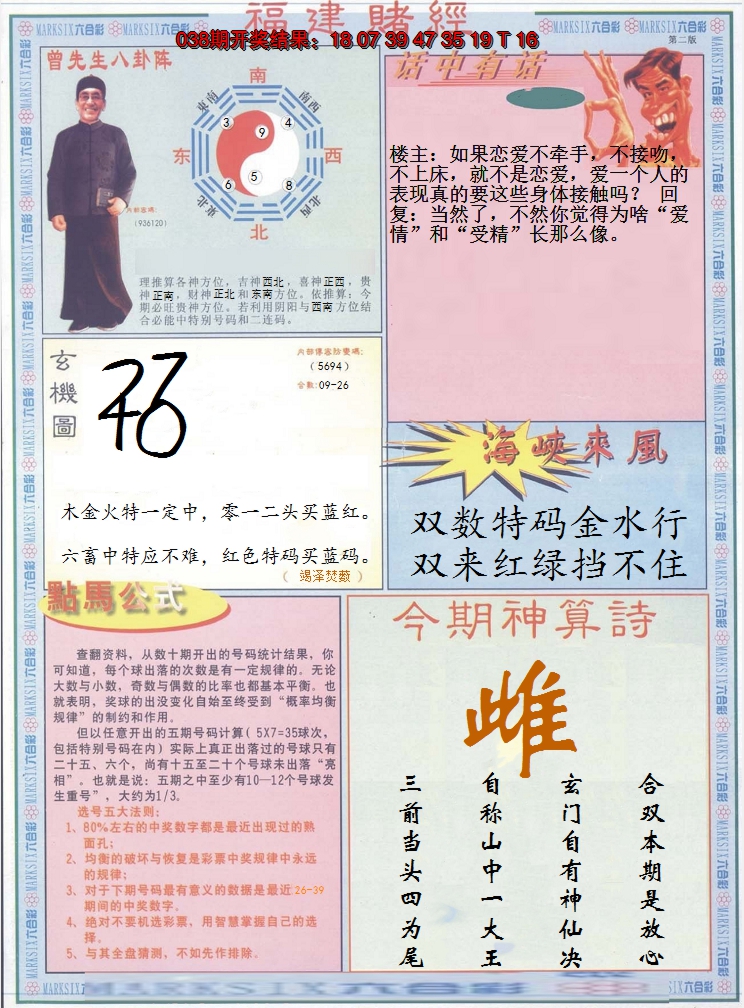 福建賭經
038期开奖结果：18 07 39 47 35 19 T 16
MARKSIX六合彩
第二版
曾先生八卦阵
南
東南
南西
3
9
4
东
西
6
5
8
東北
北西
北
內部密碼:
（936120）
理推算各神方位，吉神西北，喜神正西，贵
神正南，财神正北和东南方位。依推算：今
期必旺贵神方位。若利用阴阳与西南方位结
合必能中特别号码和二连码。
话中有话
楼主：如果恋爱不牵手，不接吻，
不上床，就不是恋爱，爱一个人的
表现真的要这些身体接触吗？ 回
复：当然了，不然你觉得为啥“爱
情”和“受精”长那么像。
玄機圖
（5694）
合數:09-26
木金火特一定中，零一二头买蓝红。
六畜中特应不难，红色特码买蓝码。
（ 竭泽焚薮 ）
海峽來風
双数特码金水行
双来红绿挡不住
點馬公式
查翻资料，从数十期开出的号码统计结果，你
可知道，每个球出落的次数是有一定规律的。无论
大数与小数，奇数与偶数的比率也都基本平衡。也
就表明，奖球的出没变化自始至终受到“概率均衡
规律”的制约和作用。
但以任意开出的五期号码计算( 5X7=35球次，
包括特别号码在内) 实际上真正出落过的号球只有
二十五、六个，尚有十五至二十个号球未出落“亮
相”。也就是说：五期之中至少有10—12个号球发
生重号”，大约为1/3。
选号五大法则：
1、80%左右的中奖数字都是最近出现过的熟
面孔；
2、均衡的破坏与恢复是彩票中奖规律中永远
的规律；
3、对于下期号码最有意义的数据是最近26-39
期间的中奖数字。
4、绝对不要机选彩票，用智慧掌握自己的选
择。
5、与其全盘猜测，不如先作排除。
今期神算詩
雌
合双本期是放心
玄门自有神仙决
自称山中一大王
三前当头四为尾